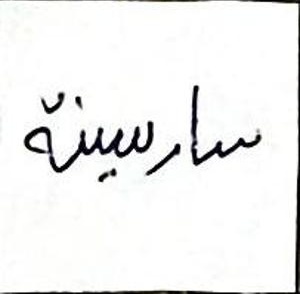 سارسينة